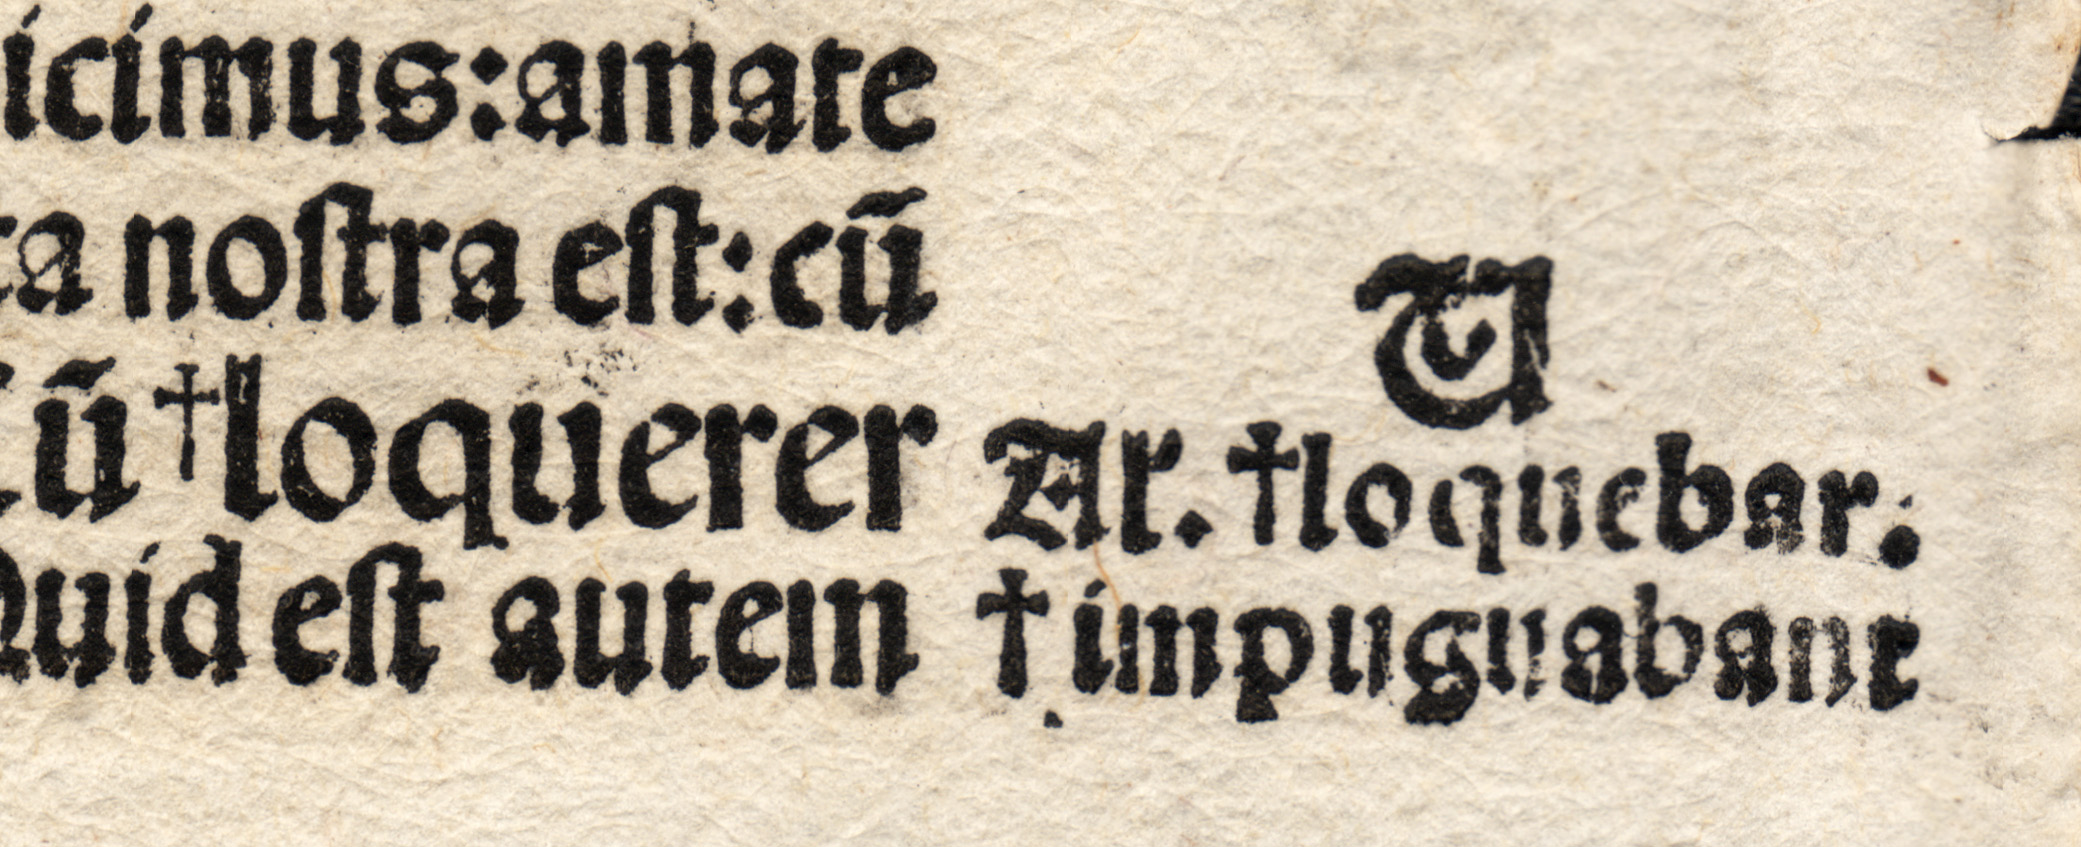 icimus:amate
ta noſtra eſt:cū
cū †loquerer
Quid eſt autem
U
Al'. †loquebar:
†impugnabant